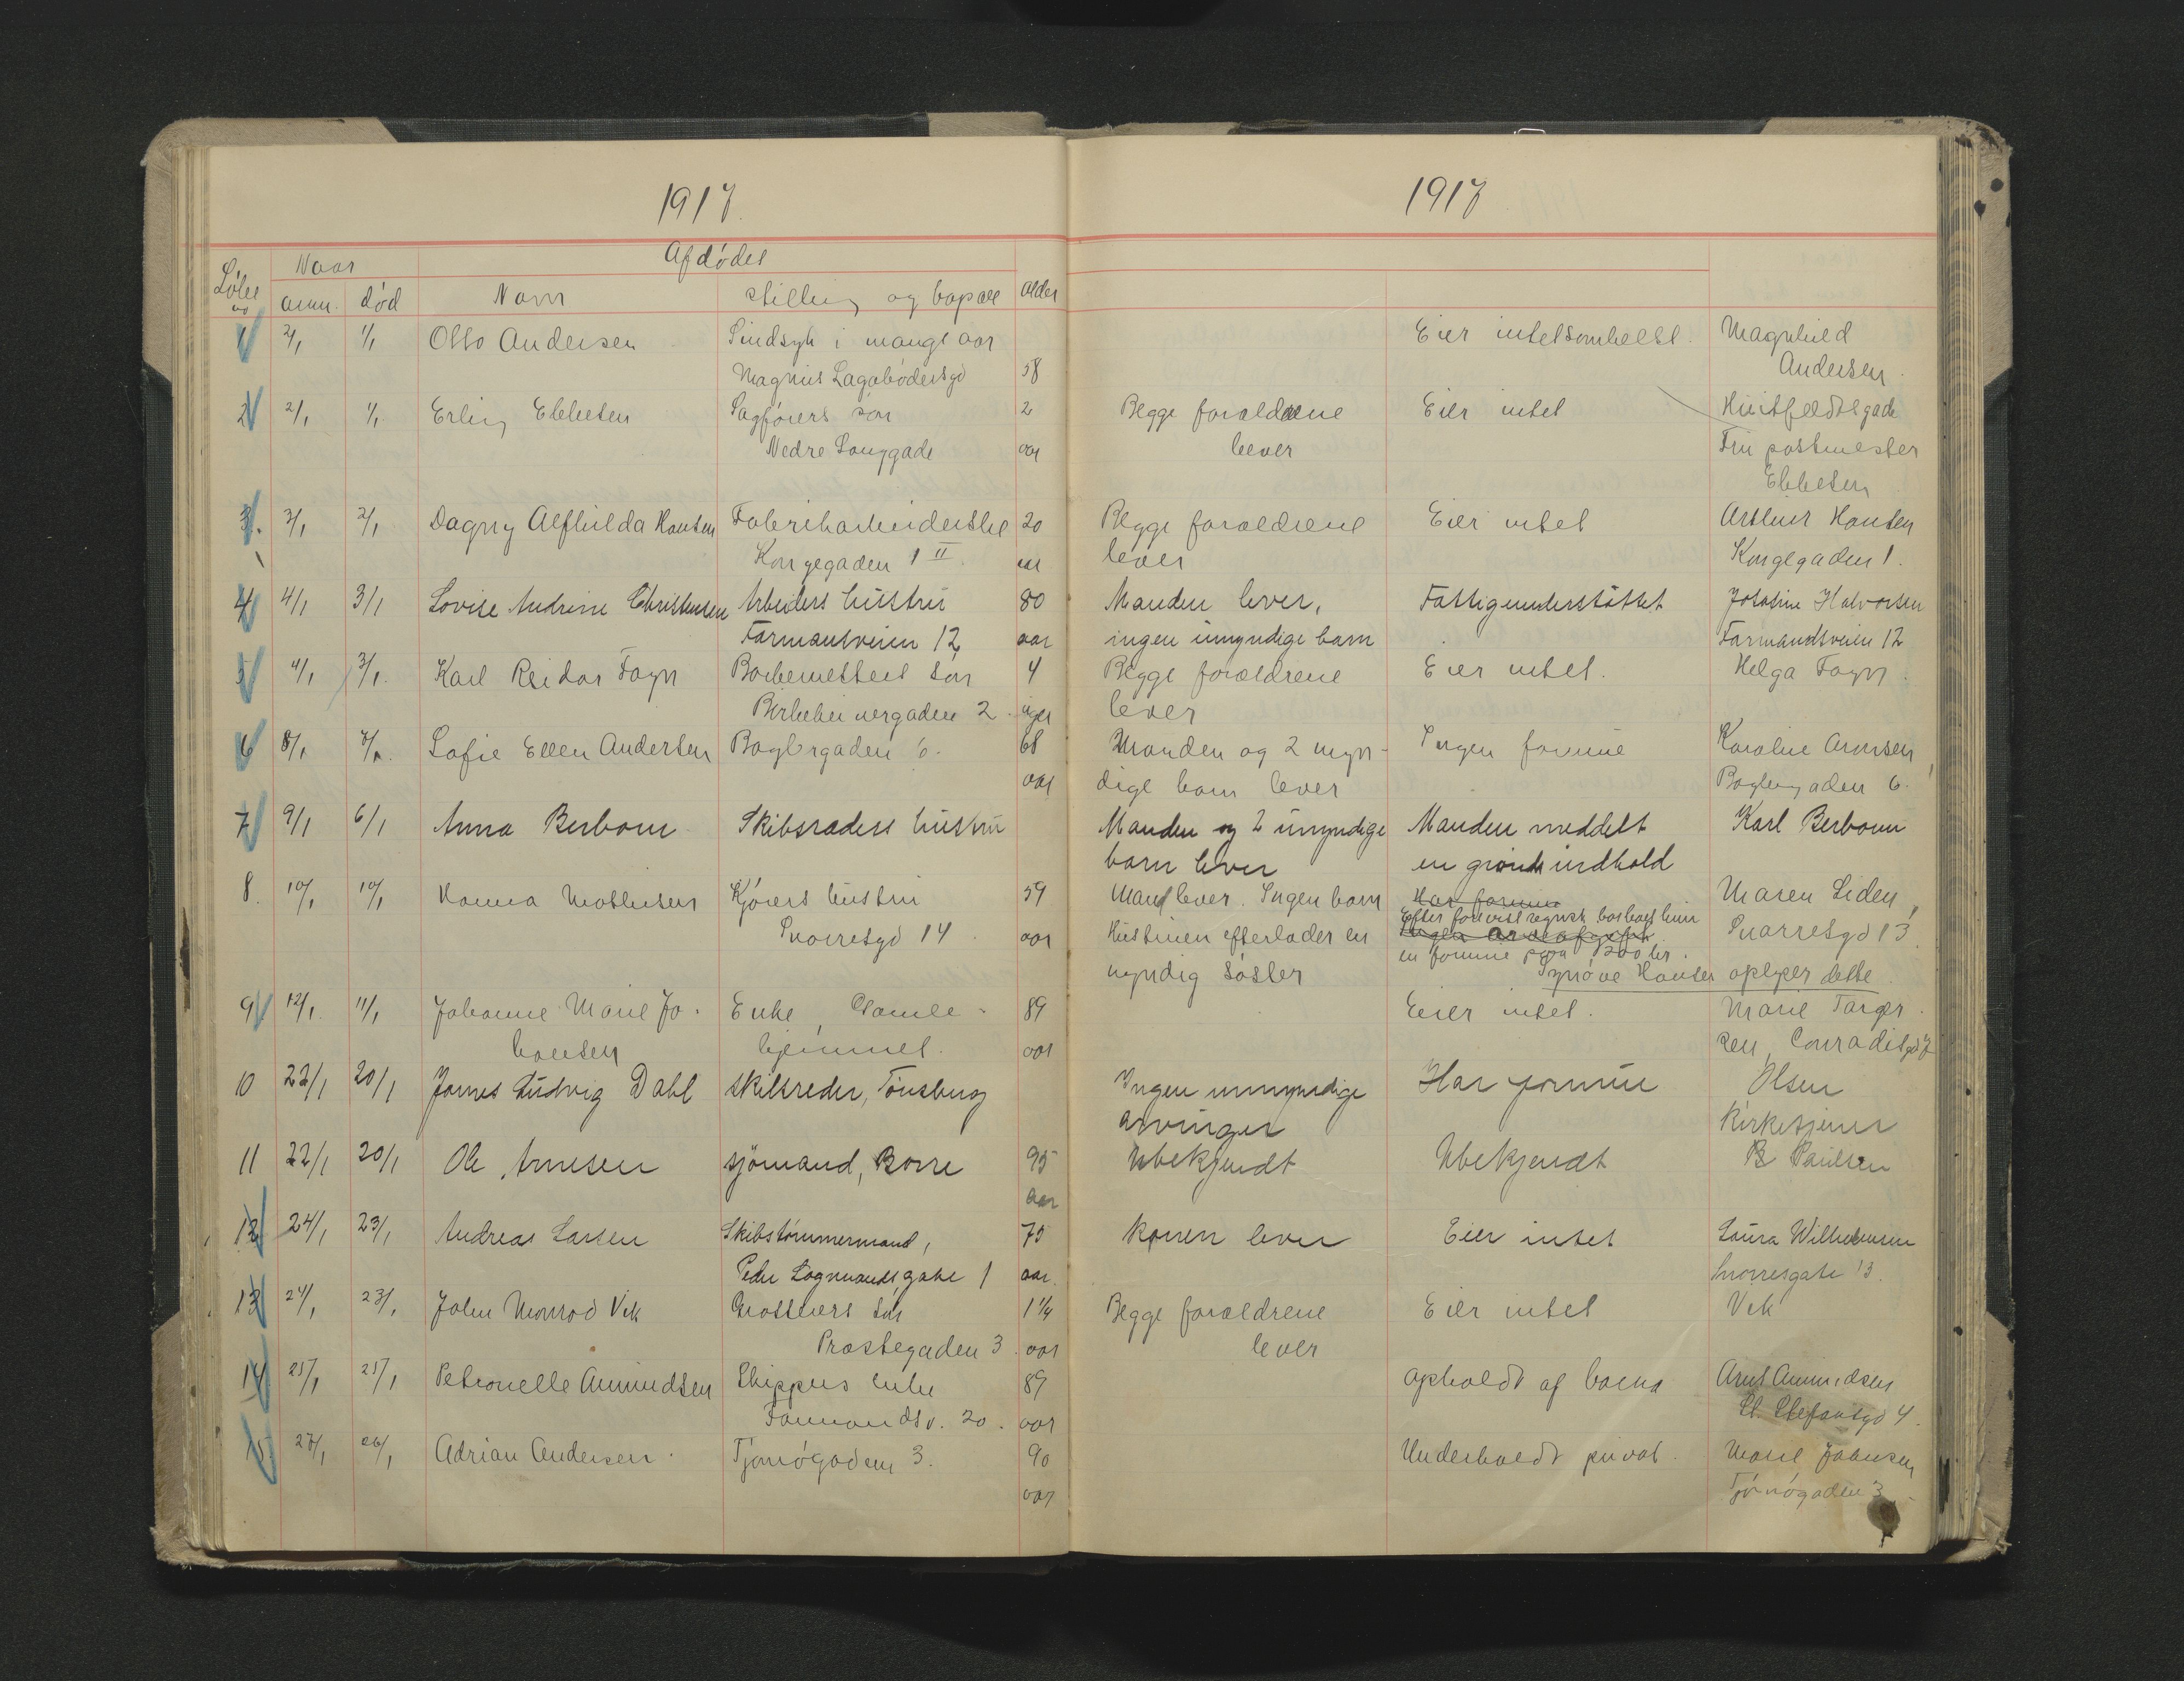 1917
1917
Afdødes
Løbe no Naar
anm. død Navn stilling og bopæl Alder
1 2/1 1/1 Otto Andersen Sindsyk i mange aar Eier intetsomhelst. Magnhild
Magnus Lagabødersgd 58 Andersen.
2 2/1 1/1 Erling Ebbesen Sagførers søn 2 Begge forældrene Eier intet Huitfeldtsgade
Nedre Langgade aar lever Fru postmester
Ebbesen
3. 3/1 2/1 Dagny Alfhilda Hansen Fabrikarbeiderske 20 Begge forældrene Eier intet Arthur Hansen
Kongegaden 1 II. aar lever Kongegaden 1.
4 4/1 3/1 Lovise Andrine Christensen Arbeiders hustru 80 Manden lever, Fattigunderstøttet Josefine Halvorsen
Farmansveien 12 aar ingen umyndige barn Farmandsveien 12
5 4/1 3/1. Karl Reidar Fagn Bakermesters søn 4 Begge forældrene Eier intet. Helga Fagn.
Birkebeinergaden 2. uger lever
6 8/1 7/1. Sofie Ellen Andersen Baglergaden 6. 68 Manden og 2 myn- Ingen formue Karoline Aronsen,
aar dige barn lever Baglergaden 6.
7 9/1 6/1 Anna Berbom Skibsrederes hustru Manden og 2 umyndige Manden meddelt Karl Berbom
barn lever en gründ indhold
8. 10/1 10/1 Hanna Mathisen Kjøreres hustru 59 Mand lever. Ingen barn Har formue Maren Liden,
Efter forevist regnsk. har hun
Snorresgd 14 aar Hustruen efterlader en Ingen arveafgift Snorresgd 13
en formue paa 1200 kr.
myndig søster Synøve Hansen oplyser dette.
9 12/1. 11/1 Johanne Marie Jo- Enke, Gamle- 89 Eier intet. Marie Targer-
hansen hjemmet. aar sen, Conradisgd 7
10 22/1 20/1 James Ludvig Dahl skibsreder, Tønsberg Ingen umyndige Har formue Olsen
arvinger Kirketjener
11 22/1 20/1 Ole Arnesen sjømand, Borre 95 Ubekjendt Ubekjendt B Paulsen
aar
12 24/1 23/1 Andreas Larsen Skibstømmermand, 75 Konen lever Eier intet Laura Wilhelmsen
Peder Lagmandsgate 1 aar. Snorresgate 13.
13 24/1 23/1 John Monrad Vik Grosserers søn 1 1/4 Begge forældrene Eier intet Vik
Præstegaden 3. aar lever
14 25/1 25/1 Petronelle Amundsen Skippers enke 89 opholdt af barna Arnt Amundsen
Farmandsv. 20. aar St. Stefansgd 4.
15 27/1 26/1 Adrian Andersen. Tjømøgaden 3. 90 Underholdt privat. Marie Johnsen
aar Tjømøgaden 3.